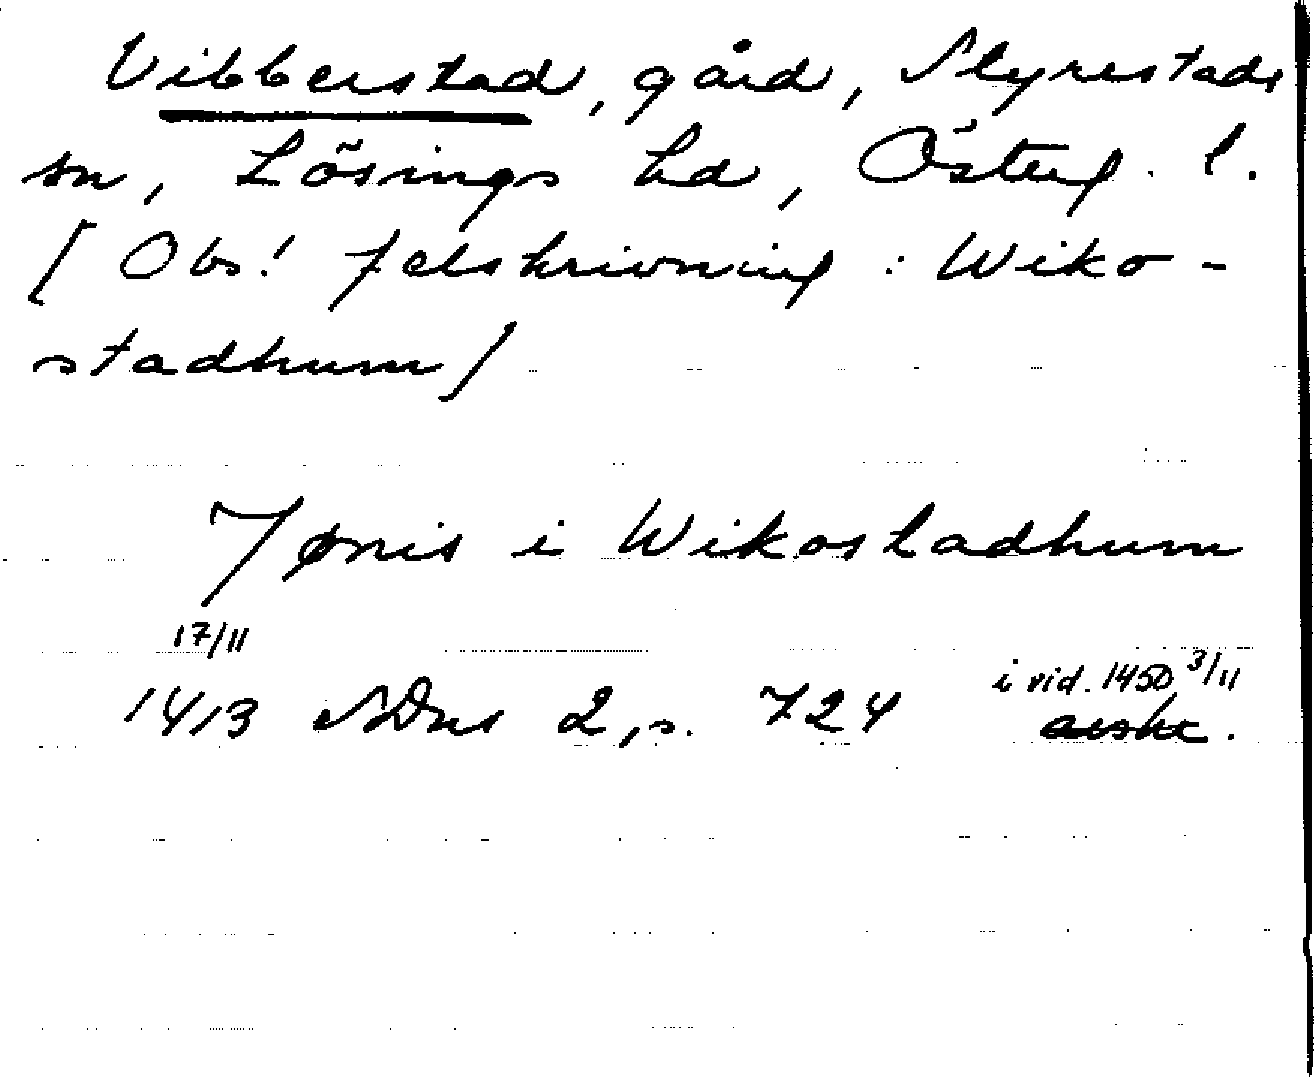 Vibberstad, gård, Styrestads
sn, Lösings hd, Österg. l.
[Obs! felskrivning: Wiko-
stadhum]
Jønis i Wikostadhum
17/11
1413 SDns 2, s. 724 i vid. 1450 3/11
avskr.